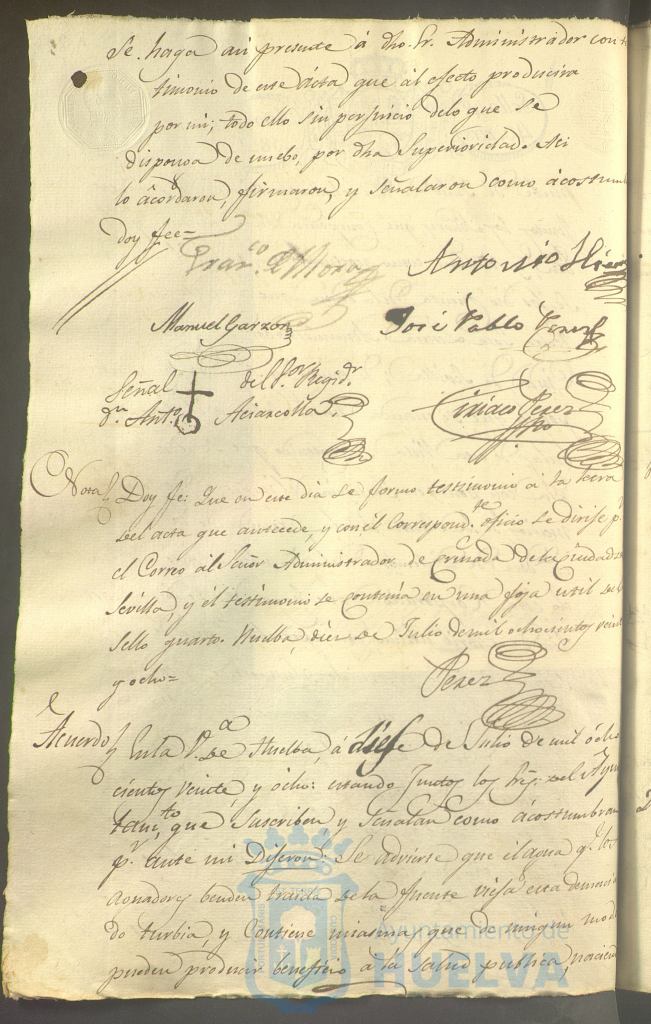 Se haga asi presente á dho. Sr. Administrador con
timonio de este Acta que al efecto producira
por mi; todo ello sin perjuicio de lo que se
disponga de nuebo, por dha Superioridad. Asi
lo acordaron, firmaron, y señalaron como acostum
doy fee=
Fran.co de Mora
Antonio
Manuel Garzon
José Pablo Perez
Señal del S.or Regid.r
D.n Ant.o
Ciriaco Perez
Nota
Doy fe: Que en este dia se formo testimonio á la letra
del acta que antecede, y con el Correspond.te oficio se dirije p.r
el Correo al Señor Administrador de Cruzada de la Ciudad de
Sevilla, y el testimonio se contenia en una foja util del
sello quarto. Huelba, diez de Julio de mil ochocientos veinte
y ocho=
Perez
Acuerdo
En la V.a de Huelba, á de Julio de mil ócho
cientos veinte, y ócho: estando Juntos los Sres. del Ayun
tam.to que Suscriben, y Señalan como ácostumbran
p.r ante mi Dijeron: Se advierte que el agua q.e los
aguadores benden traida de la fuente vieja esta demasia
do turbia, y Contiene miasmas que de ningun modo
pueden producir beneficio á la Salud publica,
Ayuntamiento de
HUELVA